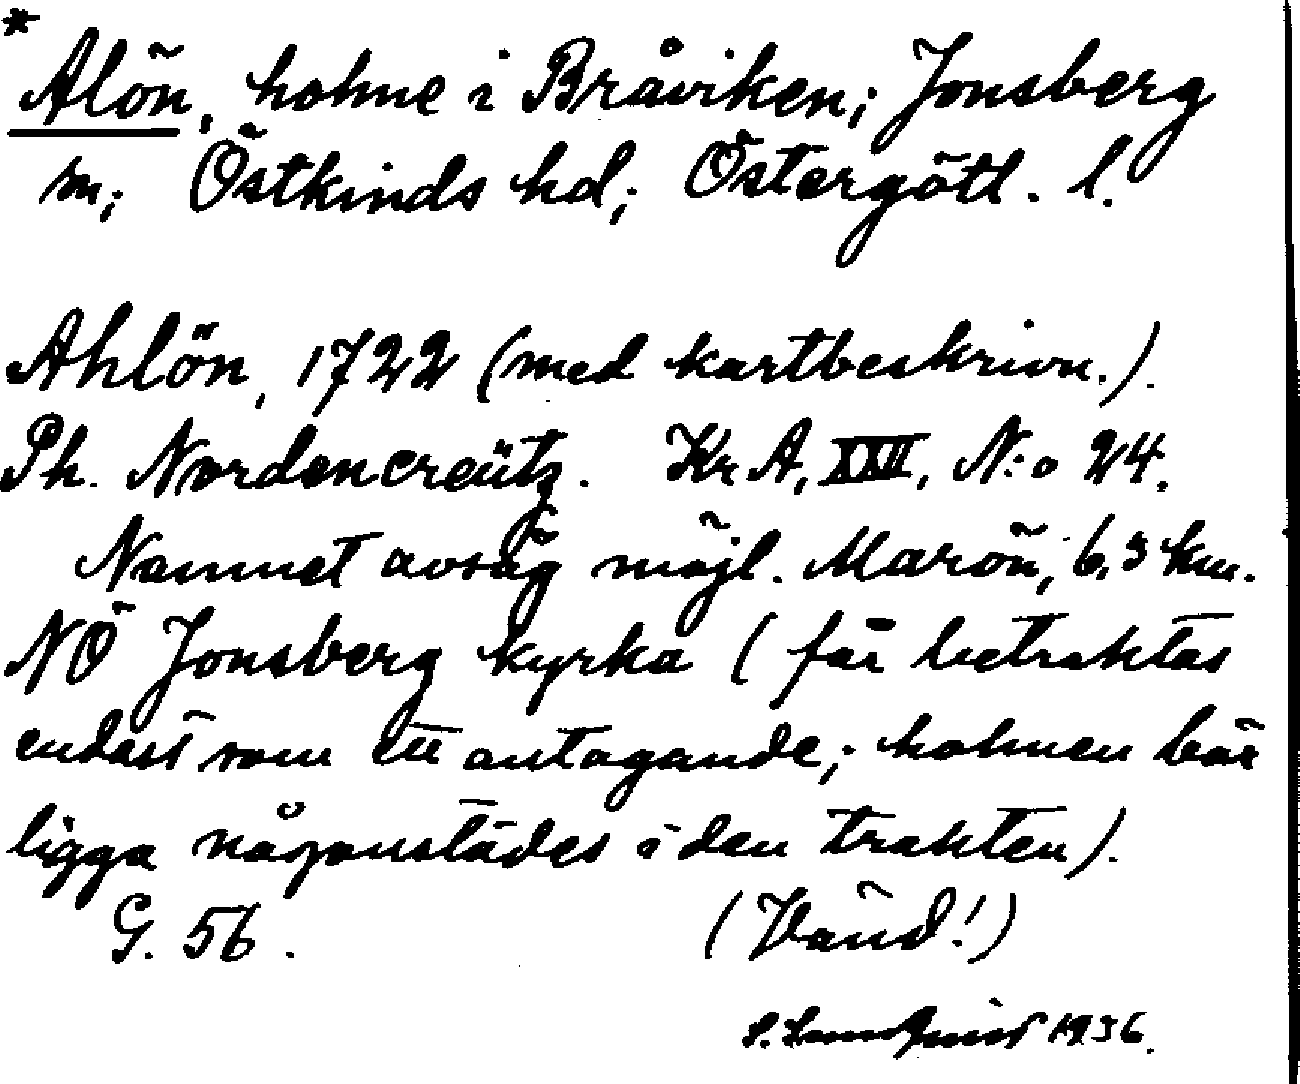 *
Alön, holme i Bråviken; Jonsberg
sn; Östkinds hd; Östergötl. l.
Ahlön, 1722 (med kartbeskrivn.).
Ph. Nordencreütz. Kr A, XXII, N:o 24.
Namnet avsåg möjl. Marön, 6,3 km.
NÖ Jonsberg kyrka (får betraktas
endast som ett antagande; holmen bör
ligga någonstädes i den trakten).
G. 56. (Vänd!)
S. 1936.